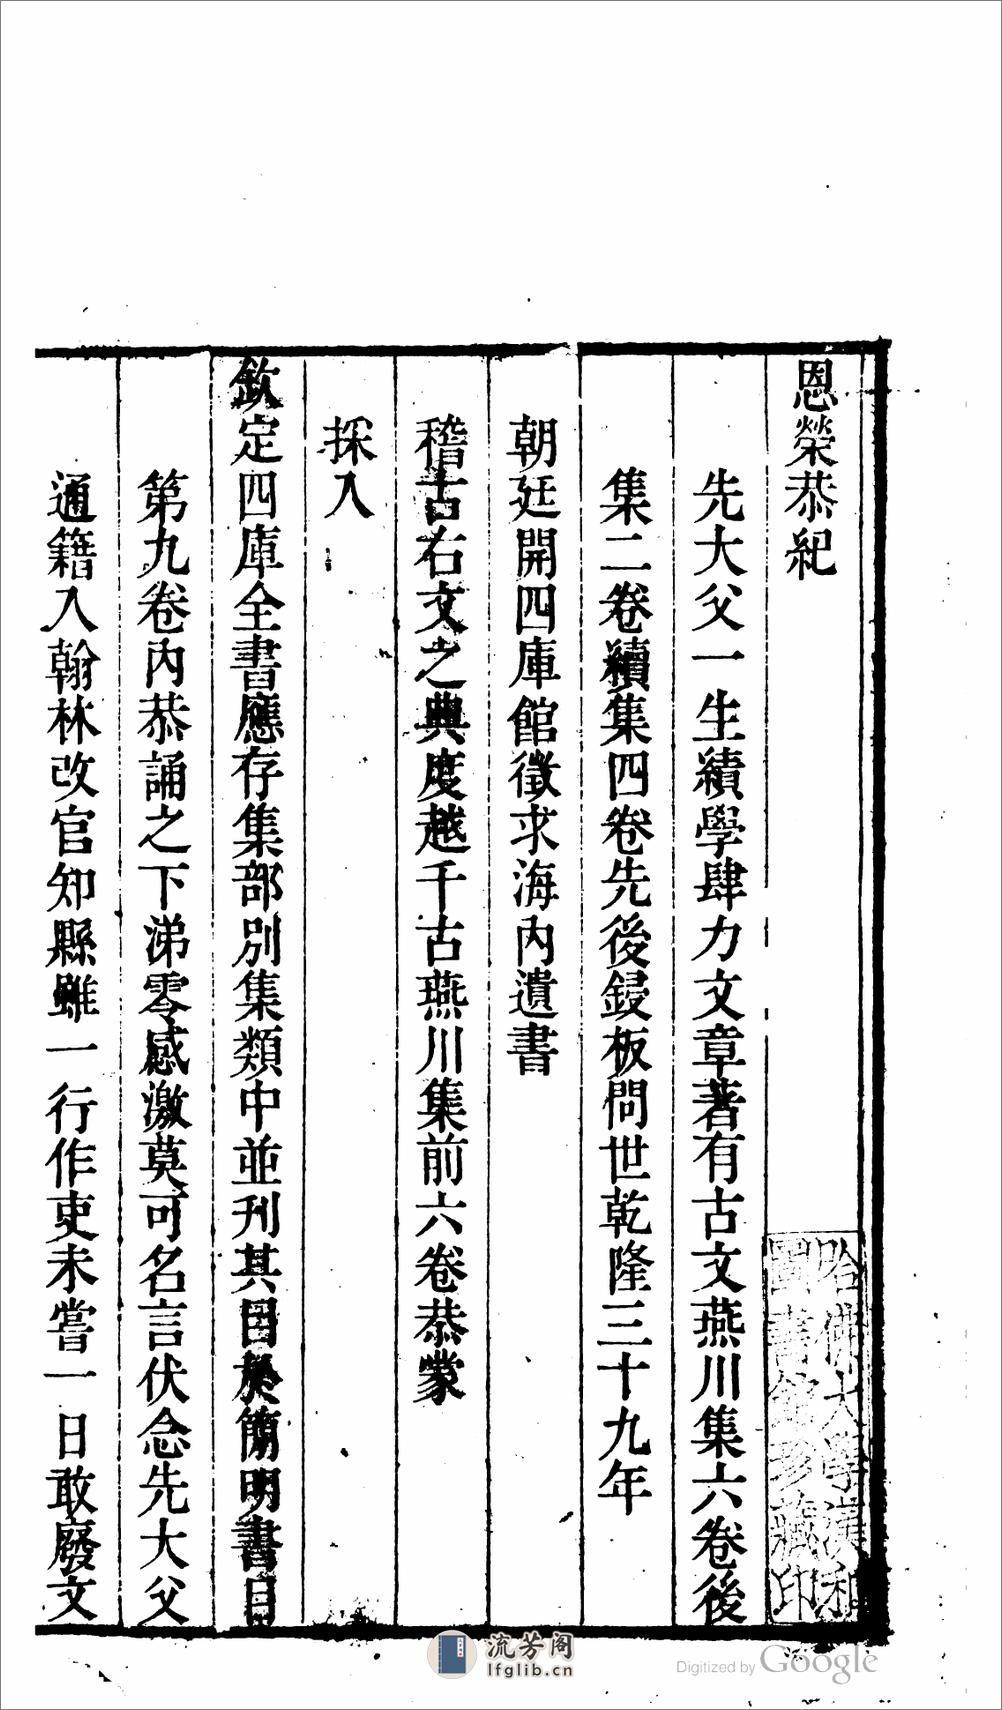 恩榮恭紀
先大父一生績學肆力文章著有古文燕川集六卷後
集二卷續集四卷先後鋟板問世乾隆三十九年
朝廷開四庫館徵求海內遺書
稽古右文之典度越千古燕川集前六卷恭蒙
採入
欽定四庫全書應存集部別集類中並刊其目於簡明書目
第九卷內恭誦之下涕零感激莫可名言伏念先大父
通籍入翰林改官知縣雖一行作吏未嘗一日敢廢文
哈佛大學漢和
圖書館珍藏印
流芳阁
lfglib.cn
Digitized by Google